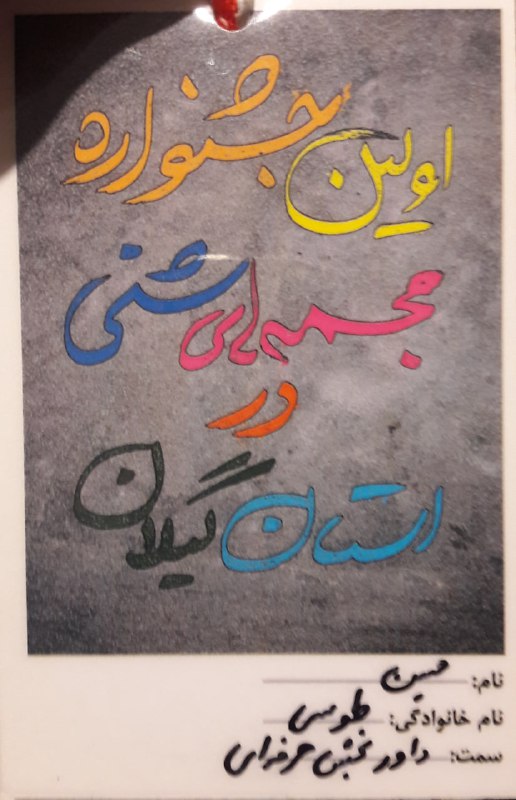 اولین جشنواره
مجسمه‌های شنی
در
استان گیلان
نام: حسین
نام خانوادگی: طوسی
سمت: داور بخش حرفه‌ای